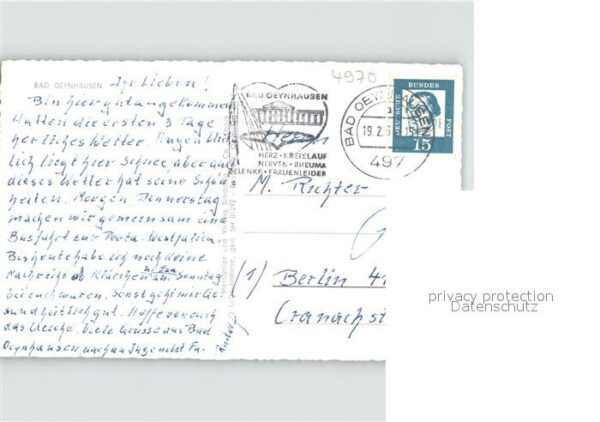 4970
BAD OEYNHAUSEN
Ihr Lieben!
Bin hier gut angekommen
Hatten die ersten 3 Tage
herrliches Wetter. Augenblick
lich liegt hier Schnee, aber auch
dieses Wetter hat seine Schön
heiten. Morgen, Donnerstag
machen wir gemeinsam eine
Busfahrt zur Porta-Westfalica
Bis heute habe ich noch keine
Nachricht ob Klärchen am Sonntag
bei euch waren. Sonst geht mir Ge
sundheitlich gut. Hoffe von euch
das Gleiche. Viele Grüsse aus Bad
Oeynhausen
BAD OEYNHAUSEN
HERZ · KREISLAUF
NERVEN · RHEUMA
GELENKE · FRAUENLEIDEN
BAD OEYNHAUSEN
19.2.6
497
DEUTSCHE
BUNDES
POST
15
M. Richter
(1) Berlin 41
Cranachst
privacy protection
Datenschutz